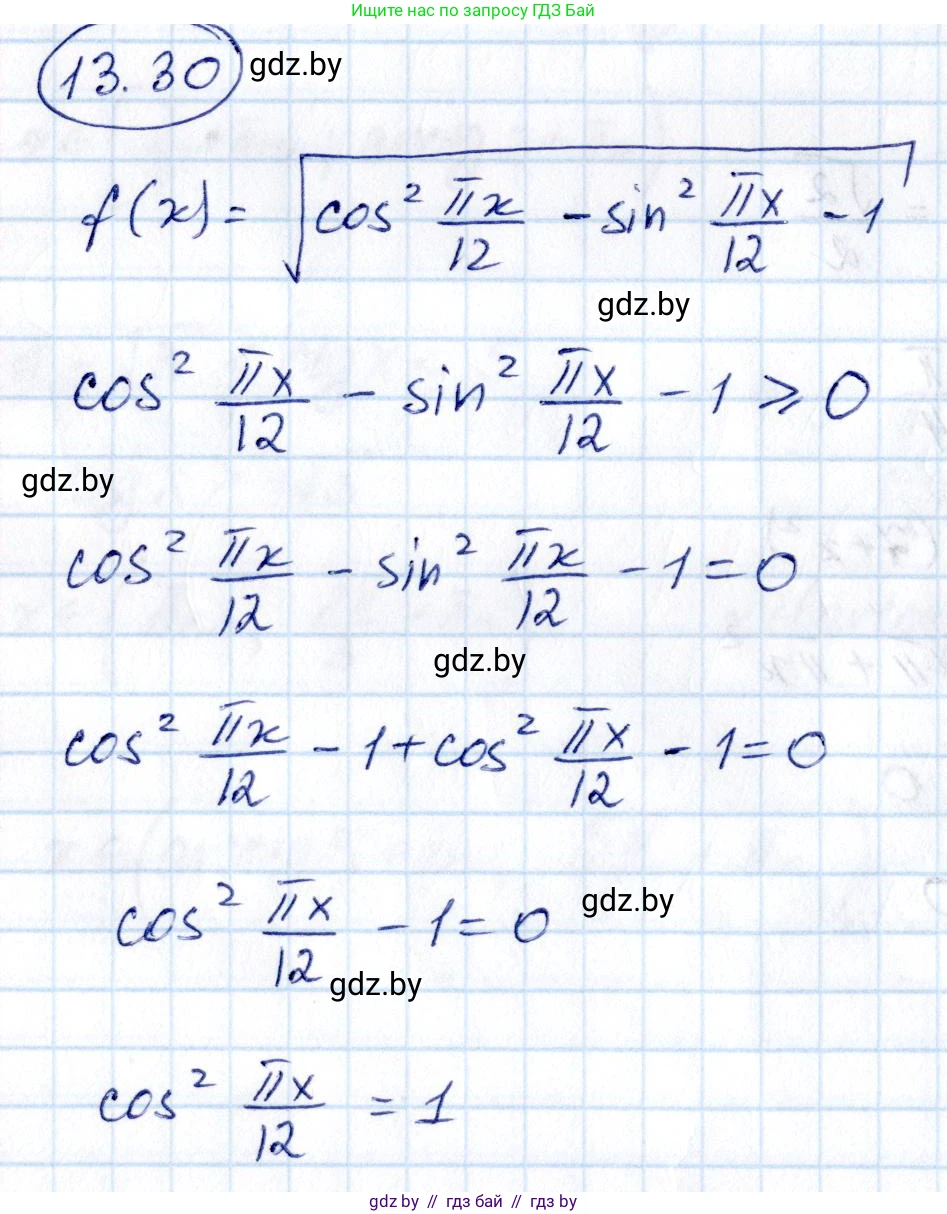 Ищите нас по запросу ГДЗ Бай
13.30 gdz.by
f(x) = √(cos² πx/12 - sin² πx/12 - 1)
gdz.by
cos² πx/12 - sin² πx/12 - 1 ⩾ 0
gdz.by
cos² πx/12 - sin² πx/12 - 1 = 0
gdz.by
cos² πx/12 - 1 + cos² πx/12 - 1 = 0
cos² πx/12 - 1 = 0 gdz.by
gdz.by
cos² πx/12 = 1
gdz.by // гдз бай // гдз by